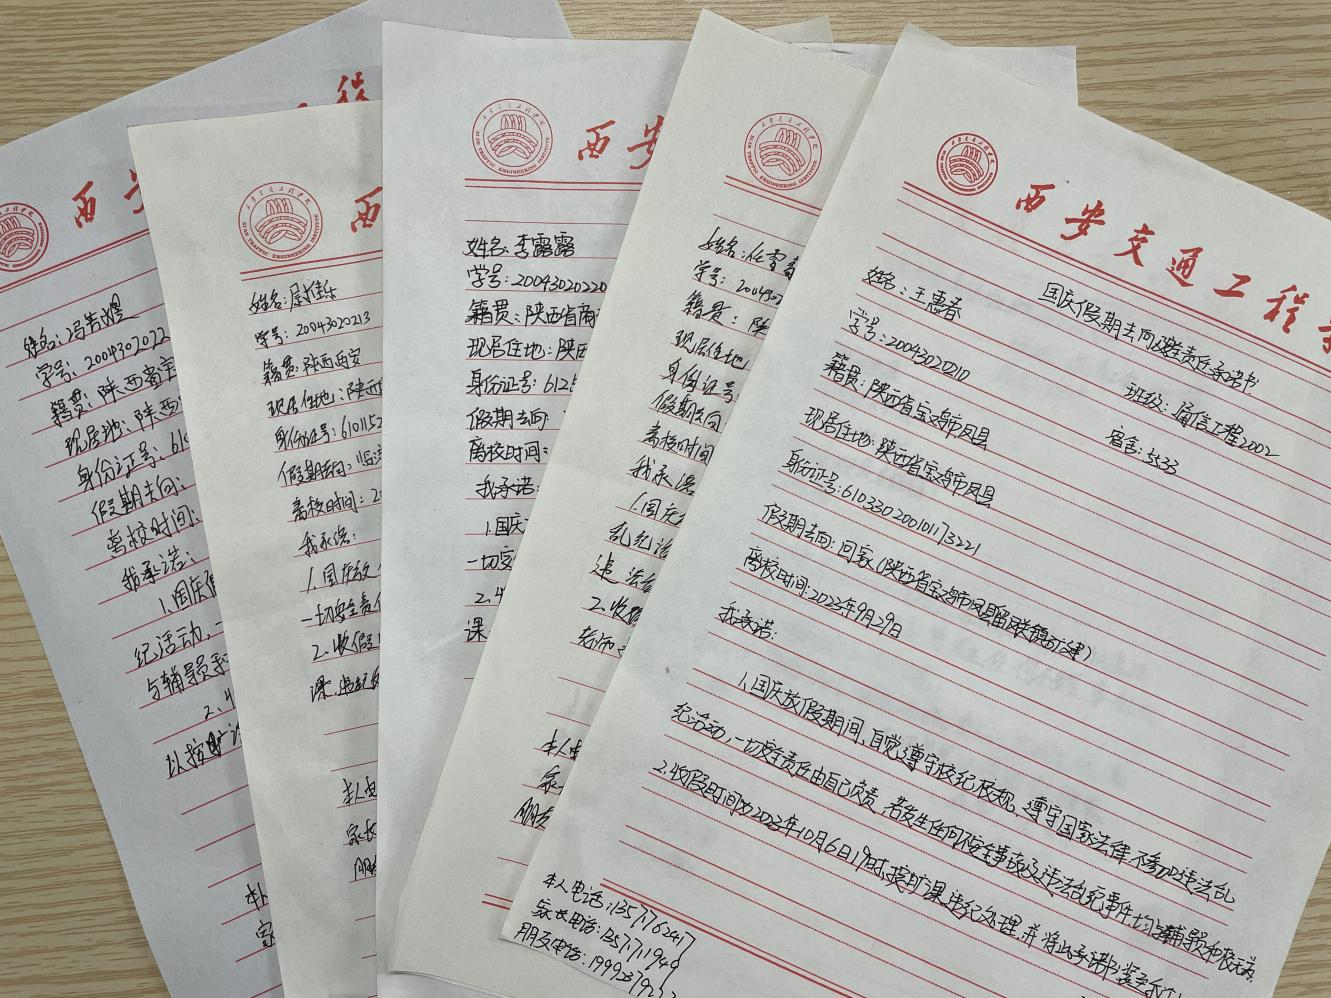 西
姓名：冯
学号：2004302022
籍贯：陕西省
现居地：陕西
身份证号：61
假期去向：
离校时间：
我承诺：
1.国庆
纪活动，一
与辅导员
2.
以按旷
西
XI'AN TRAFFIC ENGINEERING INSTITUTE
姓名：
学号：2004302013
籍贯：陕西西安
现居住地：陕西
身份证号：610115
假期去向：临
离校时间：2
我承诺：
1.国庆放
一切安全责任
2.收假
课、违纪
本人电
家长
朋
西安
XI'AN TRAFFIC ENGINEERING INSTITUTE
姓名：李露露
学号：20043020220
籍贯：陕西省商
现居住地：陕西
身份证号：6125
假期去向：
离校时间：
我承诺：
1.国庆
一切安
2.
课
XI'AN TRAFFIC ENGINEERING INSTITUTE
姓名：任雪
学号：2004302
籍贯：陕
现居住地
身份证号
假期去向
离校时间
我承诺
1.国庆
乱纪活
违法乱
2.收假
老师
本人电
家
朋友
西安交通工程
国庆假期去向及安全责任承诺书
姓名：王惠春
学号：2004302010 班级：通信工程2002
籍贯：陕西省宝鸡市凤县 宿舍：5533
现居住地：陕西省宝鸡市凤县
身份证号：610330200101173221
假期去向：回家（陕西省宝鸡市凤县留凤关镇
离校时间：2023年9月29日
我承诺：
1.国庆放假期间，自觉遵守校纪校规，遵守国家法律，不参加违法乱
纪活动，一切安全责任由自己负责，若发生任何不安全事故及违法乱纪事件均与辅导员和校无关。
2.收假时间为2023年10月6日19时，按旷课、违纪处理，并将此承诺书装至个
本人电话：13571762417
家长电话：
朋友电话：